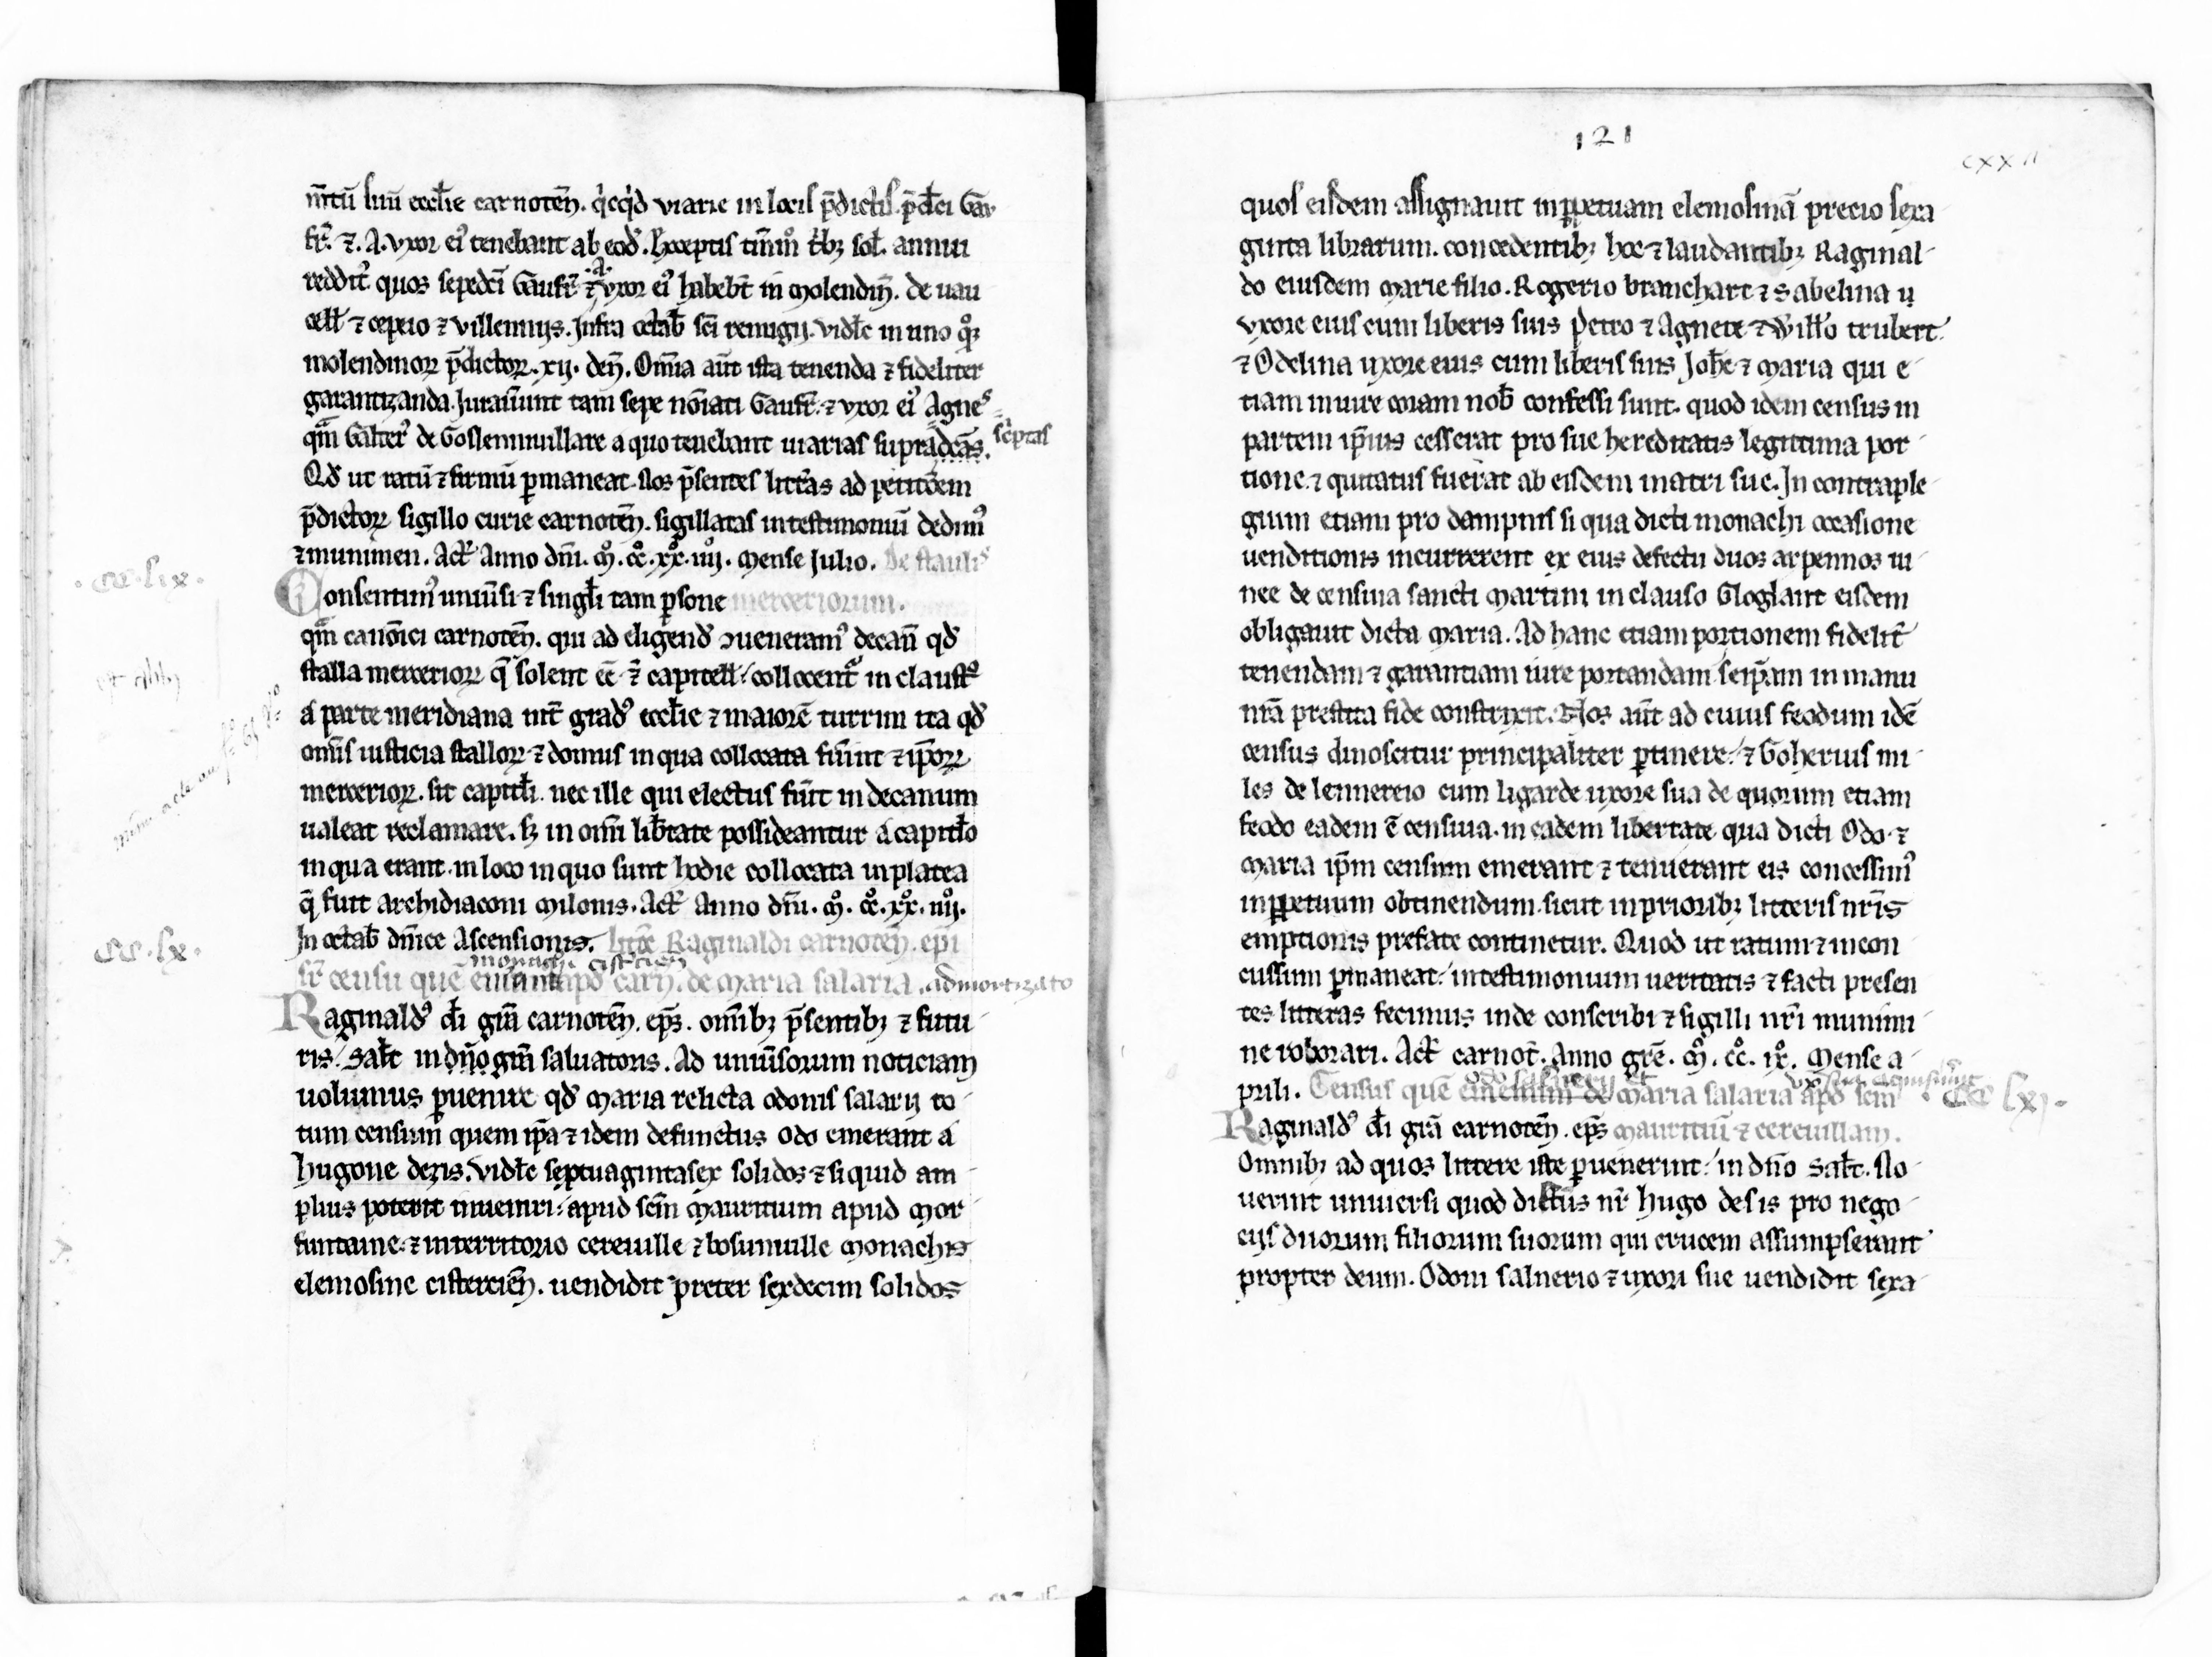 m̄tū suū eccl̄ie carnoteñ. q̇cq̇d viarie in locis p̄dictis. p̄dc̄i Gau
fr̄. ⁊. A. vxor eiꝰ tenebant ab eod̄. Exceptis tm̄mͦ t̄bꝫ sol̄. annui
redditꝰ quos sepedc̄i Gaufr̄ ⁊ .a. vxor eiꝰ habebt̄ in molendin̄. de uau
cell̄ ⁊ cepeio ⁊ villennijs. Infra octab̄ sc̄i remigij. vidl̄c in uno qͦꝫ
molendinoꝝ p̄dictoꝝ. xij. den̄. Om̄ia aūt ista tenenda ⁊ fideliter
garantizanda. Jurauer̄unt tam sepe noīati Gaufr̄. ⁊ vxor eiꝰ Agnes
qm̄ Galterꝰ de Goslenmuillare a quo tenebant uiarias supradc̄as. sc̄ptas
Qd̄ ut ratū ⁊ firmū ꝑmaneat. Nos p̄sentes litt̄as ad petitōem
p̄dictoꝝ sigillo curie carnoteñ. sigillatas in testimoniū dedimꝰ
⁊ munimen. Act̄ Anno dn̄i. mͦ. ccͦ. xxͦ. iiijͦ. Mense Julio. De stallis
.cc.lix.
Consentimꝰ uniūsi ⁊ singl̄i tam ꝑsone merceriorum.
qm̄ canōici carnoteñ. qui ad eligend̄ ↄueneramꝰ decan̄ qd̄
stalla merceroꝝ q̄ solent ēē ⁊ capitell̄ collocent̄ in claustꝰ
a parte meridiana int̄ gradꝰ eccl̄ie ⁊ maiorē turrim ita qd̄
om̄is iusticia stalloꝝ ⁊ domus in qua collocata fūint ⁊ ip̄oꝝ
merceroꝝ. sit capitl̄i. nec ille qui electus fūit in decanum
ualeat reclamare. sꝫ in om̄i lib̄tate possideantur a capitl̄o
in qua erant. in loco in quo sunt hodie collocata in platea
q̄ fuit archidiaconi Milonis. Act̄ Anno dn̄i. mͦ. ccͦ. xxͦ. iiijͦ.
In octab̄ dn̄ice Ascensionis. litt̄e Raginaldi carnoteñ. ep̄i
cc.lx.
sr̄ censu quē emerunt monachi cistercien̄ apd̄ carn̄. de maria salaria. admortizato
Raginaldꝰ di grā carnoteñ. ep̄s. om̄ibꝫ p̄sentibꝫ ⁊ futu
ris. Salt̄ in dn̄o grā saluatoris. Ad uniūsorum noticiam
uolumus ꝑuenire qd̄ maria relicta odonis salarij to
tum censum quem ip̄a ⁊ idem defunctus odo emerant a
hugone dezis. Vidl̄c septuagintasex solidos ⁊ si quid am
plius poterit inueniri. apud scm̄ Mauritium apud mor
funtaine. ⁊ in territorio cereuille ⁊ bosunuille monachis
elemosine cistercien̄. uendidit preter sexdecim solidos
121
cxxii
quos eisdem assignauit in ꝑpetuam elemosinā precio sexa
ginta librarum. concedentibꝫ hoc ⁊ laudantibꝫ Raginal
do eiusdem marie filio. Rogerio branchart ⁊ sabelina u
vxore eius cum liberis suis petro ⁊ Agnete ⁊ Will̄o trubert
⁊ Odelina uxore eius cum liberis suis Joh̄e ⁊ maria qui e
tiam in iure coram nob̄ confessi sunt. quod idem census in
partem ip̄ius cesserat pro sue hereditatis legittima por
tione. ⁊ quitatus fuerat ab eisdem matri sue. In contraple
gium etiam pro dampnis si qua dicti monachi occasione
uenditionis incurrerent ex eius defectu duos arpennos ui
nee de censiua sancti Martini in clauso Gloglant eisdem
obligauit dicta maria. Ad hanc etiam portionem fidelit̄
tenendam ⁊ garantiam iure portandam seip̄am in manu
nr̄a prestita fide constrinxit. Nos aūt ad cuius feodum idē
census dinoscitur principaliter ꝑtinere. ⁊ Goherius mi
les de lennereio cum ligarde uxore sua de quorum etiam
feodo eadem ē censiua. in eadem libertate qua dicti Odo ⁊
Maria ip̄m censum emerant ⁊ tenuerant eis concessimꝰ
in ꝑpetuum obtinendum. sicut in prioribꝫ litteris nr̄is
emptionis prefate continetur. Quod ut ratum ⁊ incon
cussum ꝑmaneat. in testimonium ueritatis ⁊ facti presen
tes litteras fecimus inde conscribi ⁊ sigilli nr̄i munimi
ne roborari. Act̄ carnot̄. Anno grē. mͦ. ccͦ. ixͦ. Mense a
prili. Census quē odo salarius et maria salaria apd̄ scm̄
cc lxj.
Raginaldꝰ di grā carnoteñ. ep̄s Mauritiū ⁊ cereuillam.
Omnibꝫ ad quos littere iste ꝑuenerint. in dn̄o salt̄. No
uerint uniuersi quod dilectus nr̄ hugo desis pro nego
cijs duorum filiorum suorum qui crucem assumpserant
propter deum. Odoni salnerio ⁊ uxori sue uendidit sexa